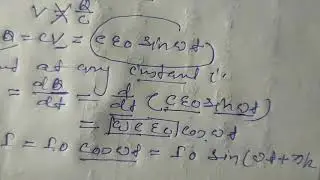 V V Q/C
Q = CV = C ε0 sin ωt
at any instant i.
= dQ/dt = d/dt (C ε0 sin ωt)
= ω C ε0 cos ωt
I = I0 cos ωt = I0 sin (ωt + π/